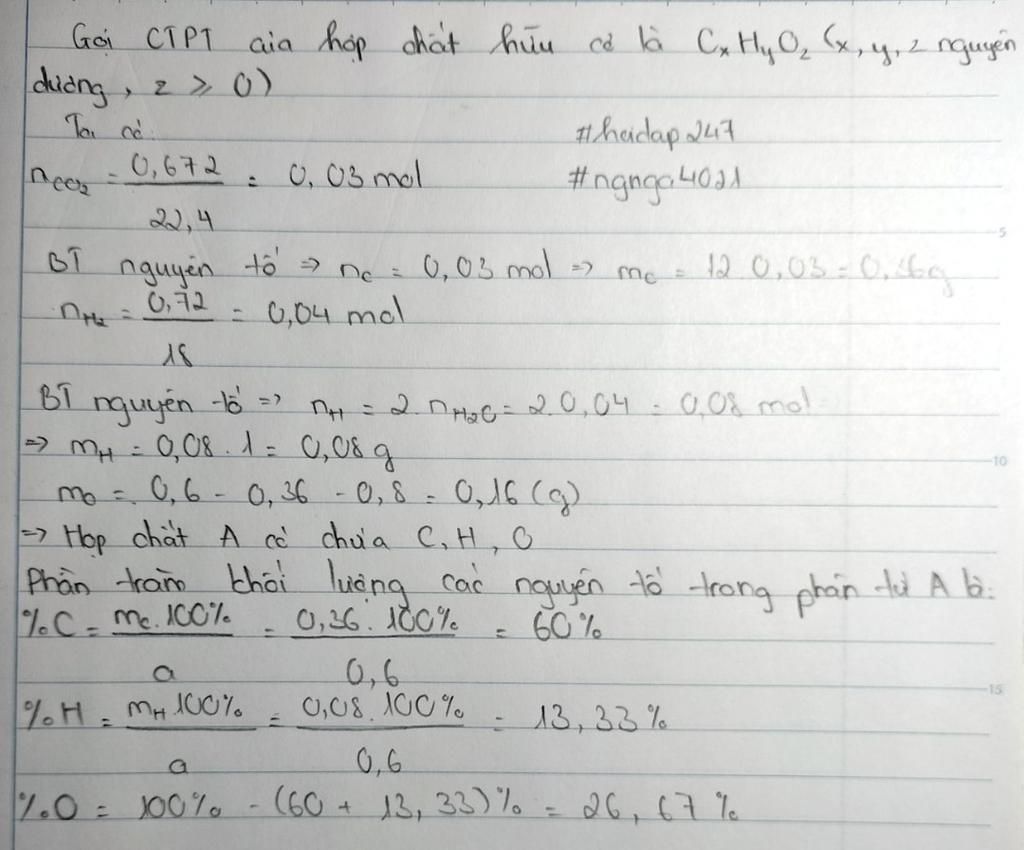 Gọi CTPT của hợp chất hữu cơ là CxHyOz (x, y, z nguyên
dương, z ≥ 0)
Ta có:
#hoidap247
nCO2 = 0,672 / 22,4 = 0,03 mol
#ngnga4021
BT nguyên tố => nC = 0,03 mol => mC = 12 0,03 = 0,36g
nH2 = 0,72 / 18 = 0,04 mol
BT nguyên tố => nH = 2. nH2O = 2.0,04 = 0,08 mol
=> mH = 0,08 . 1 = 0,08g
mO = 0,6 - 0,36 - 0,8 = 0,16 (g)
=> Hợp chất A có chứa C, H, O
Phần trăm khối lượng các nguyên tố trong phân tử A là:
%C = mC.100% / a = 0,36. 100% / 0,6 = 60%
%H = mH.100% / a = 0,08. 100% / 0,6 = 13,33%
%O = 100% - (60 + 13,33)% = 26,67%
5
10
15